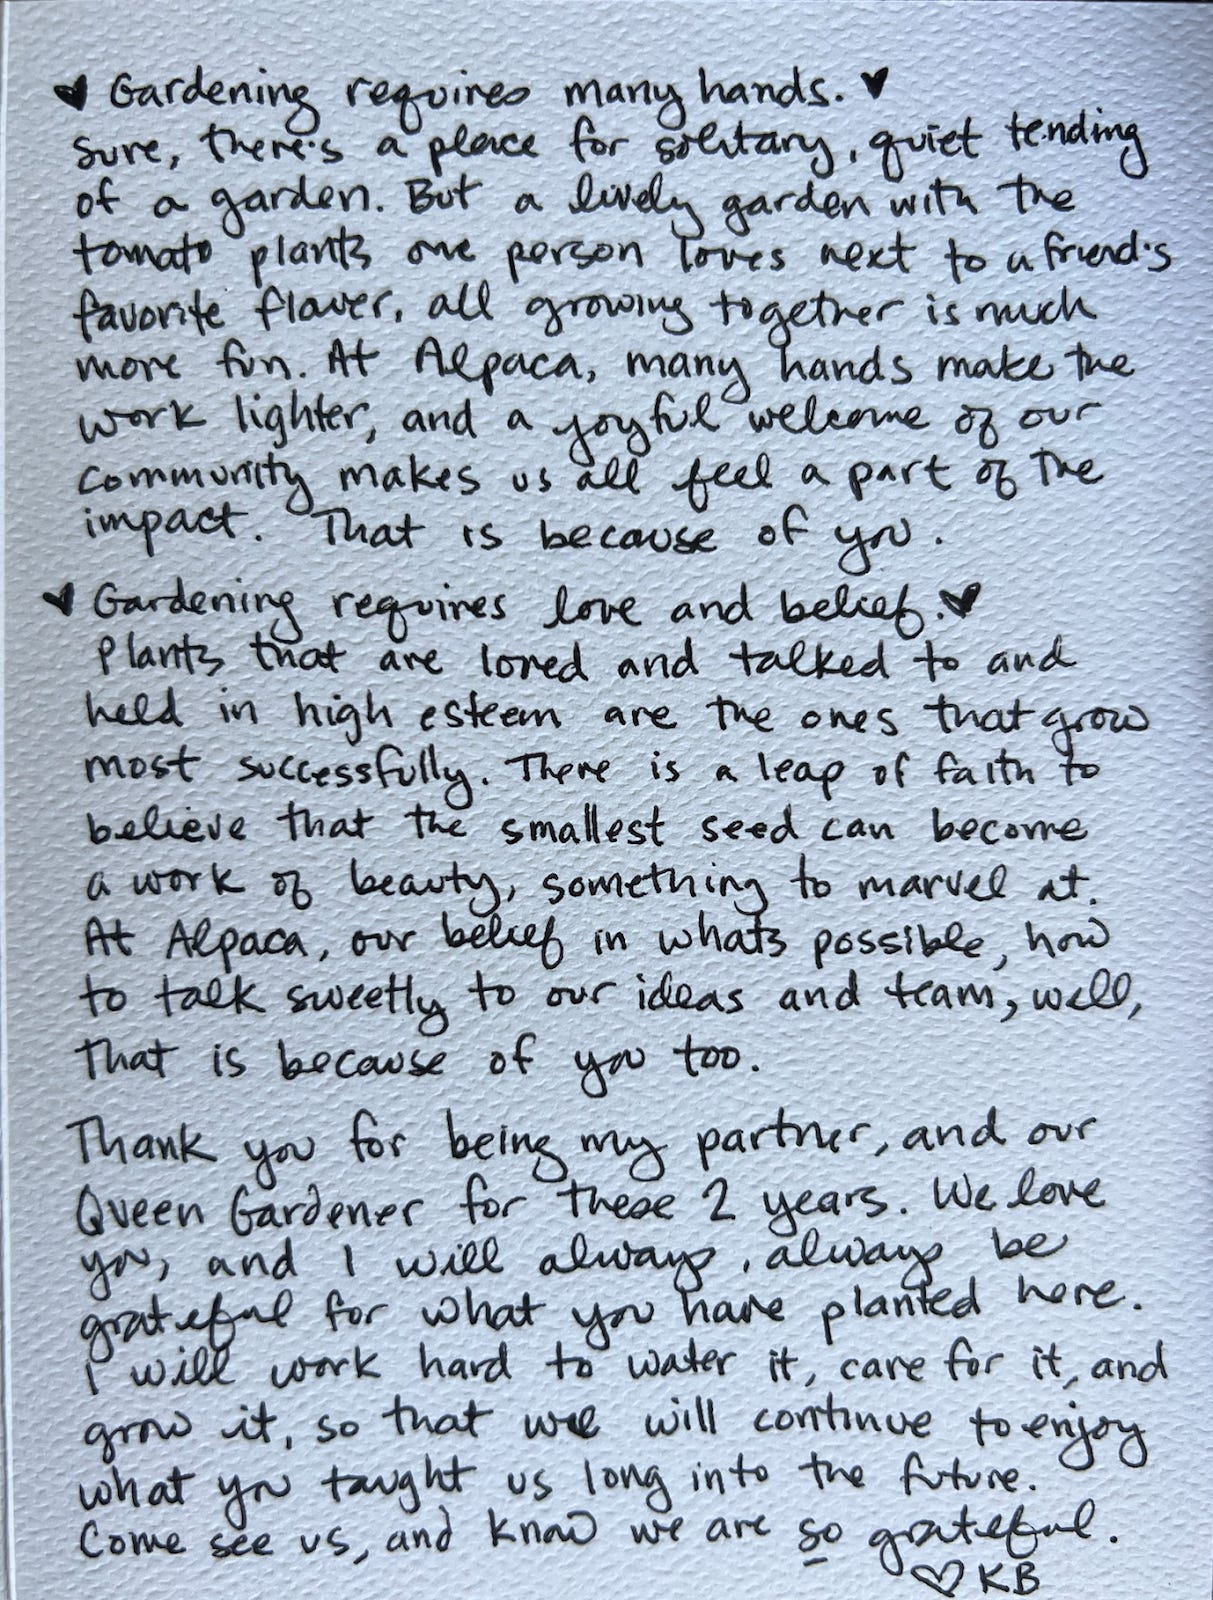 ♥ Gardening requires many hands. ♥
Sure, there's a place for solitary, quiet tending
of a garden. But a lively garden with the
tomato plants one person loves next to a friend's
favorite flower, all growing together is much
more fun. At Alpaca, many hands make the
work lighter, and a joyful welcome of our
community makes us all feel a part of the
impact. That is because of you.
♥ Gardening requires love and belief. ♥
Plants that are loved and talked to and
held in high esteem are the ones that grow
most successfully. There is a leap of faith to
believe that the smallest seed can become
a work of beauty, something to marvel at.
At Alpaca, our belief in what's possible, how
to talk sweetly to our ideas and team, well,
that is because of you too.
Thank you for being my partner, and our
Queen Gardener for these 2 years. We love
you, and I will always, always be
grateful for what you have planted here.
I will work hard to water it, care for it, and
grow it, so that we will continue to enjoy
what you taught us long into the future.
Come see us, and know we are so grateful.
♡ KB